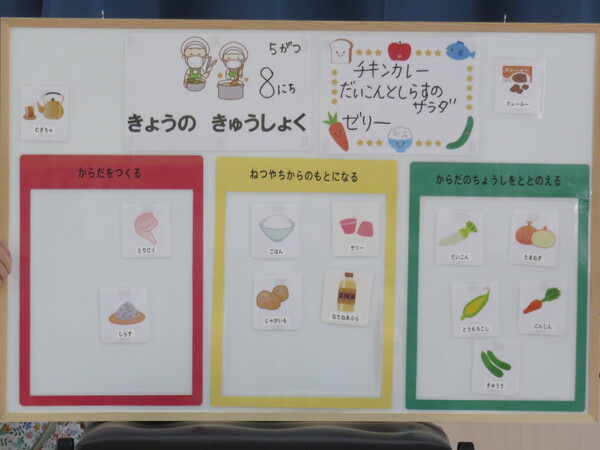 5がつ
8にち
きょうの きゅうしょく
チキンカレー
だいこんとしらすの
サラダ
ゼリー
カレールー
むぎちゃ
からだをつくる
とりにく
しらす
ねつやちからのもとになる
ごはん
ゼリー
じゃがいも
なたねあぶら
からだのちょうしをととのえる
だいこん
たまねぎ
とうもろこし
にんじん
きゅうり